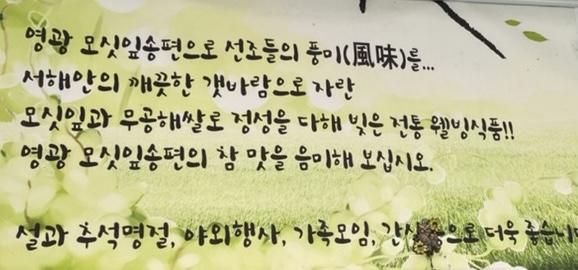 영광 모싯잎송편으로 선조들의 풍미(風味)를...
서해안의 깨끗한 갯바람으로 자란
모싯잎과 무공해쌀로 정성을 다해 빚은 전통 웰빙식품!!
영광 모싯잎송편의 참 맛을 음미해 보십시오.
설과 추석명절, 야외행사, 가족모임, 더욱